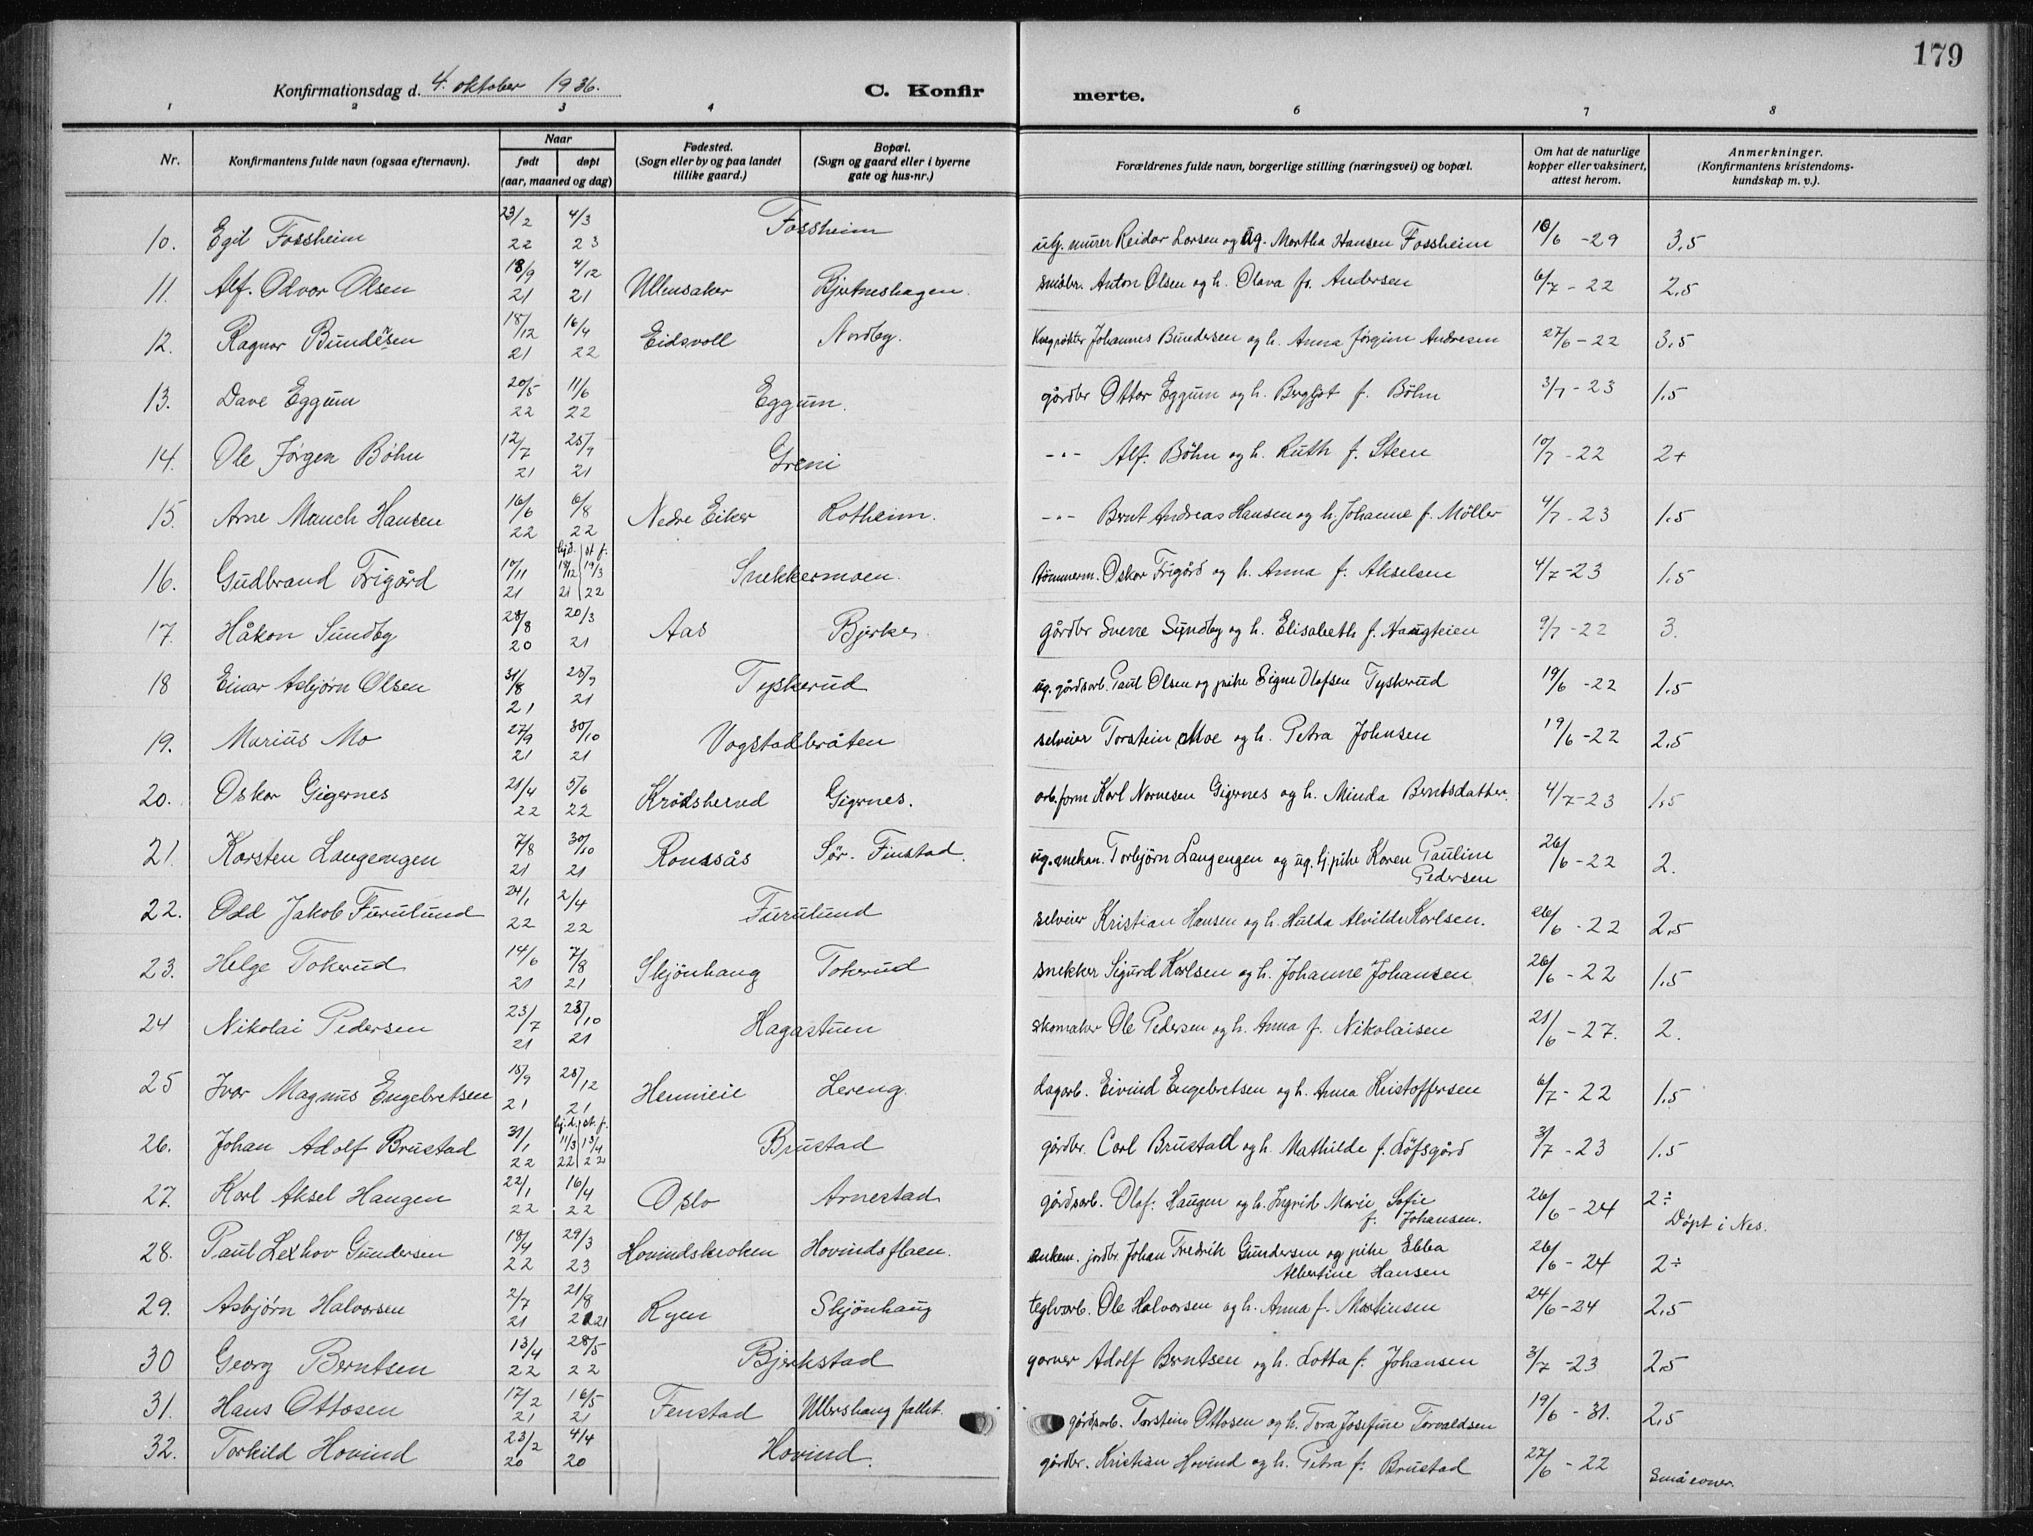 179
Konfirmationsdag d. 4. oktober 1936.
C. Konfirmerte.
1 2 3 4 6 7 8
Nr. Konfirmantens fulde navn (ogsaa efternavn). Naar født døpt (aar, maaned og dag) Fødested. (Sogn eller by og paa landet tillike gaard.) Bopæl. (Sogn og gaard eller i byerne gate og hus-nr.) Forældrenes fulde navn, borgerlige stilling (næringsvei) og bopæl. Om hat de naturlige kopper eller vaksinert, attest herom. Anmerkninger. (Konfirmantens kristendomskundskap m. v.).
10. Egil Fossheim 23/2 22 4/3 23 Fossheim murer Reidar Larsen og ug. Martha Hansen Fossheim 10/6 -29 3,5
11. Alf Odvar Olsen 18/9 21 4/12 21 Ullensaker Bjertneshagen. småbr. Anton Olsen og h. Olava f. Andersen 6/7 - 22 2,5
12. Ragnar Bundesen 18/12 21 16/4 22 Eidsvoll Nordby. Johannes Bundersen og h. Anna Jørgine Andresen 27/6 - 22 3,5
13. Dave Eggum 20/5 22 11/6 22 Eggum. gårdbr Ottar Eggum og h. Bergljot f. Bøhn 3/7 - 23 1.5
14. Ole Jørgen Bøhn 12/7 21 25/9 21 Greni -"- Alf Bøhn og h. Ruth f. Steen 10/7 - 22 2+
15. Arne Munch Hansen 16/6 22 6/8 22 Nedre Eiker Rotheim. -"- Bernt Andreas Hansen og h. Johanne f. Møller 4/7 - 23 1.5
16. Gudbrand Trigård 10/11 21 hj.d. 18/12 21 st. f. 19/3 22 Snekkermoen. tømmerm. Oskar Trigård og h. Anna f. Akselsen 4/7 -23 1.5
17. Håkon Sundby 28/8 20 20/3 21 Aas Bjerke gårdbr Sverre Sundby og h. Elisabeth f. Haugteien 9/7 - 22 3.
18 Einar Asbjørn Olsen 31/8 21 25/9 21 Tyskerud ug. gårdsarb. Paul Olsen og pike Signe Olafsen Tyskerud 19/6 -22 1.5
19. Marius Mo 27/9 21 30/10 21 Vogstadbråten selveier Torstein Moe og h. Petra Johnsen 19/6 -22 2,5
20. Oskar Gigernes 21/4 22 5/6 22 Krødsherad Gigernes. arb.form Karl Gigernes og h. Minda Berntsdatter. 4/7-23 1.5
21. Karsten Langengen 7/8 21 30/10 21 Romsås Sør. Finstad. ug. mekan. Torbjørn Langengen og ug. hj.pike Karen Pauline Pedersen 26/6 - 22 2.
22. Odd Jakob Furulund 24/1 22 2/4 22 Furulund selveier Kristian Hansen og h. Hulda Alvilde Karlsen. 26/6 - 22 2,5
23. Helge Tokerud 14/6 21 7/8 21 Skjønhaug Tokerud snekker Sigurd Karlsen og h. Johanne Johansen 26/6 - 22 1.5
24 Nikolai Pedersen 23/7 21 23/10 21 Hagastuen skomaker Ole Pedersen og h. Anna f. Nikolaisen 21/6 - 27. 2.
25 Ivar Magnus Engebretsen 15/9 21 25/12 21 Hennieie Lereng. dagarb. Eivind Engebretsen og h. Anna Kristoffersen 6/7 - 22 1.5
26. Johan Adolf Brustad 31/1 22 hj.d. 11/3 22 st. f. 13/4 22 Brustad gårdbr. Carl Brustad og h. Mathilde f. Løfsgård 3/7 - 23 1.5
27. Karl Aksel Haugen 22/1 22 16/4 22 Oslo Arnestad gårdsarb. Olaf Haugen og h. Ingrid Marie Sofie f. Johansen. 26/6 - 24 2÷ Døpt i Nes.
28. Paul Lexhov Gundersen 18/4 22 29/3 23 Hovindskroken Hovindsflaen. enkem. jordbr Johan Fredrik Gundersen og pike Ebba Albertine Hansen 26/6 - 24 2÷
29. Asbjørn Halvorsen 2/7 21 21/8 21 Ryen Skjønhaug teglvarb. Ole Halvorsen og h. Anna f. Martinsen 24/6 -24 2,5
30 Georg Berntsen 13/4 22 28/5 22 Bjerkstad garver Adolf Berntsen og h. Lotta f. Johansen 3/7 -23 2.5
31. Hans Ottosen 17/2 21 16/5 21 Fenstad Ullershaug fattt. gårdsarb. Torstein Ottosen og h. Tora Josefine Torvaldsen 19/6 - 31. 2,5
32. Torkild Hovind 23/2 20 4/4 20 Hovind. gårdbr. Kristian Hovind og h. Petra f. Brustad 27/6 - 22 Små evner.